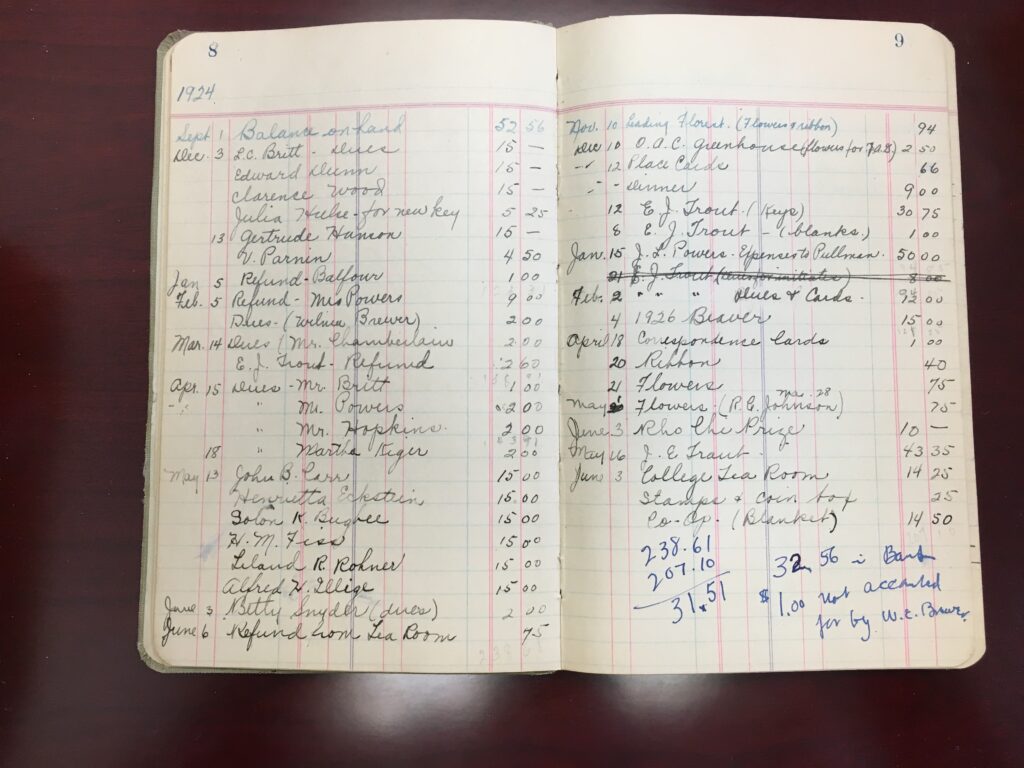 8
1924
Sept 1 Balance on hand 52 56
Dec. 3 L.C. Britt - Dues 15 —
Edward Dunn 15 —
Clarence Wood 15 —
Julia Hulse - for new key 5 25
13 Gertrude Hanson 15 —
V. Parnin 4 50
Jan 5 Refund - Balfour 1 00
Feb. 5 Refund - Mrs Powers 9 00
Dues - (Wilma Brewer) 2 00
Mar. 14 Dues (Mr. Chamberlain 2 00
E. J. Trout - Refund 2 60
Apr. 15 Dues - Mr. Britt 1 00
" " Mr. Powers 2 00
" Mr. Hopkins. 2 00
18 " Martha Kiger 2 00
May 13 John B. Carr 15 00
Henrietta Eckstein 15 00
Solon K. Bugbee 15 00
H. M. Fiss 15 00
Leland R. Rohner 15 00
Alfred W. Illige 15 00
June 3 Netty Snyder (dues) 2 00
June 6 Refund from Tea Room 75
9
Nov. 10 Leading Florest. (Flowers & ribbon) 94
Dec 10 O.A.C. Greenhouse (flowers for 2 50
" 12 Place Cards 66
" - Dinner 9 00
12 E. J. Trout (Keys) 30 75
8 E. J. Trout - (blanks.) 1 00
Jan. 15 J. L. Powers - Expenses to Pullman. 50 00
21 E. J. Trout (Dues for initiates) 8 00
Feb. 2 " " " Dues & Cards. 12 00
4 1926 Beaver 15 00
April 18 Correspondence Cards 1 00
20 Ribbon 40
21 Flowers 75
May Flowers. (R. E. Johnson) Ma. 28 75
June 3 Rho Chi Prize 10 —
May 16 J. E Trout - 43 35
June 3 College Tea Room 14 25
Stamps & Coin box 25
Co-Op. (Blanket) 14 50
238.61
207.10
31.51
32.56 in Bank
$1.00 not accounted
for by W.C. Brewer